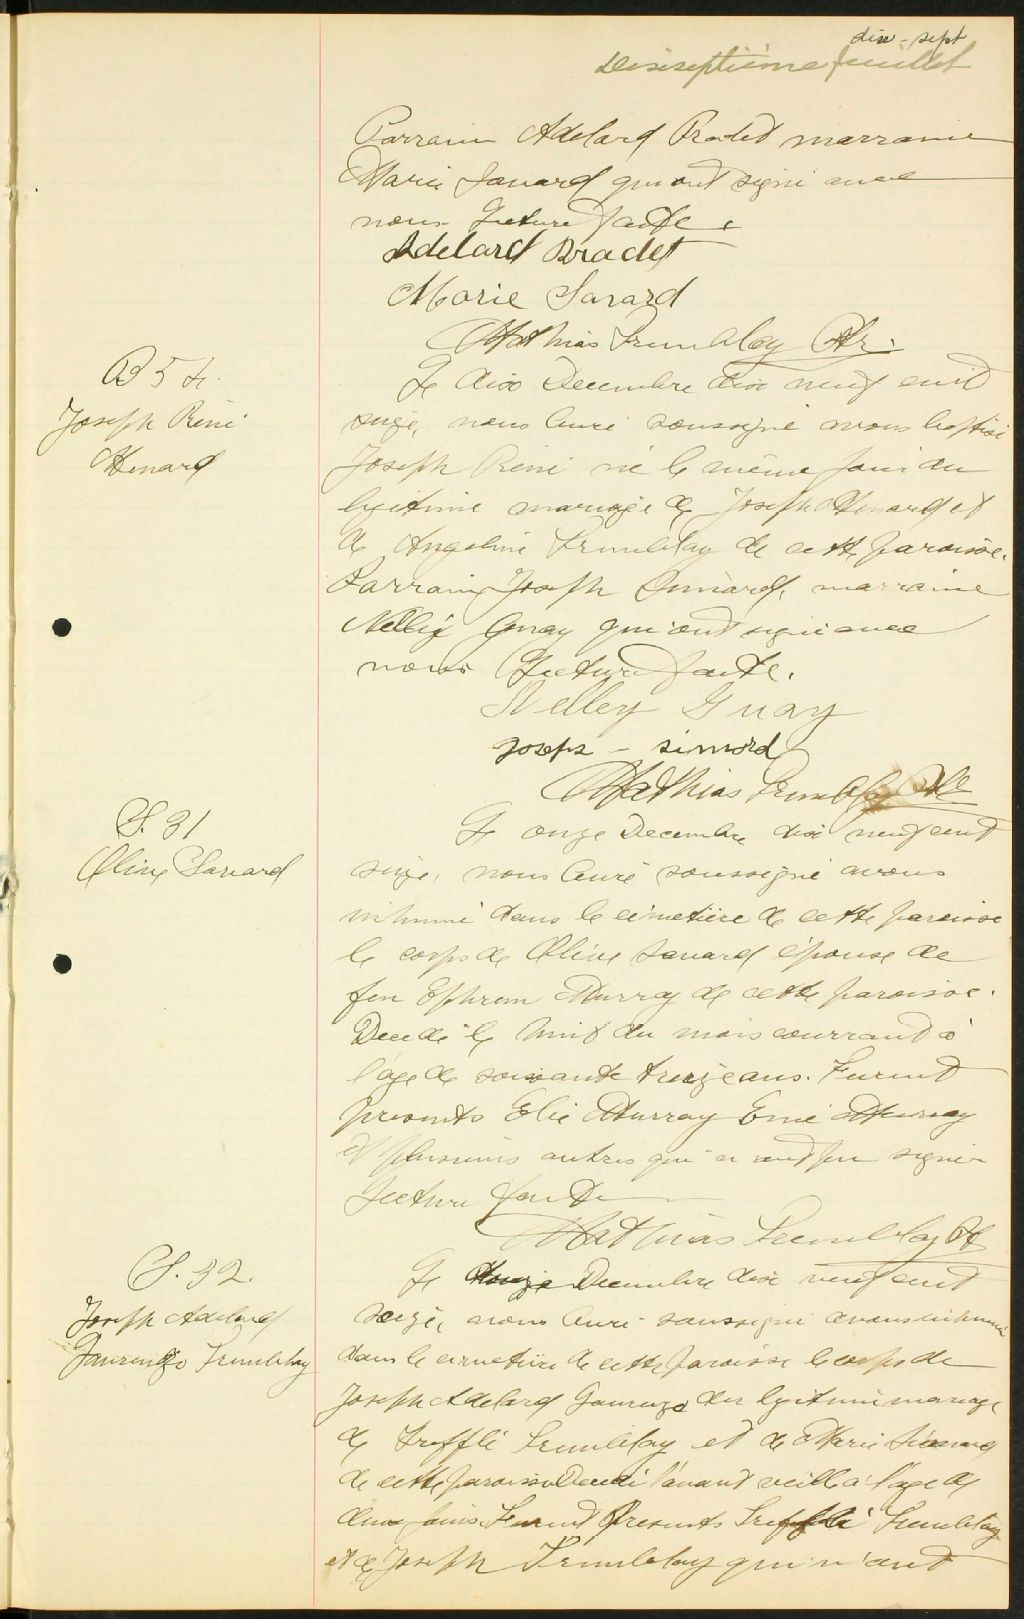 dix-sept
Dixseptième feuillet
Parrain Adelard Bradet marraine
Marie Savard qui ont signé avec
nous Lecture faite.
Adelard Bradet
Marie Savard
Mathias Tremblay Ptr.
B 54.
Joseph René
Menard
Le dix Decembre dix neuf cent
seize, nous Curé soussigné avons baptisé
Joseph René né le même jour du
legitime mariage de Joseph Menard et
de Angeline Tremblay de cette paroisse.
Parrain Joseph Simard, marraine
Nellie Guay qui ont signé avec
nous Lecture faite.
Nelley Guay
Joseph - simard
Mathias Tremblay Ptr
S. 31
Olive Savard
Le onze Decembre dix neuf cent
seize, nous Curé soussigné avons
inhumé dans le cimetière de cette paroisse
le corps de Olive Savard épouse de
feu Ephrem Murray de cette paroisse.
Decedé le huit du mois courrant à
l'age de soixante treize ans. Furent
presents Elie Murray Murray
et plusieurs autres qui n'ont pu signer
Lecture faite
Mathias Tremblay Pt
S. 32.
Joseph Adelard
Laurenzo Tremblay
Le Decembre dix neuf cent
seize, nous Curé soussigné avons inhumé
dans le cimetière de cette paroisse le corps de
Joseph Adelard Laurenzo du legitime mariage
de Treffle Tremblay et de Marie Simard
de cette paroisse Decedé l'avant veille a l'age de
deux jours. Furent Presents Treffle Tremblay
et de Joseph Tremblay qui n'ont